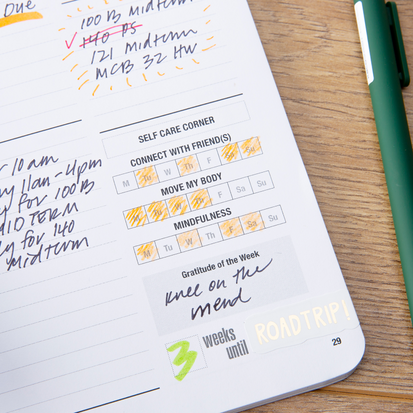 Due
100 B Midterm
✓ 140 PS
121 Midterm
MCB 32 HW
10 am
11am-4pm
for 100B
MIDTERM
for 140
Midterm
SELF CARE CORNER
CONNECT WITH FRIEND(S)
M Tu W Th F Sa Su
MOVE MY BODY
M Tu W Th F Sa Su
MINDFULNESS
M Tu W Th F Sa Su
Gratitude of the Week
knee on the
mend
3 weeks until ROADTRIP!
29